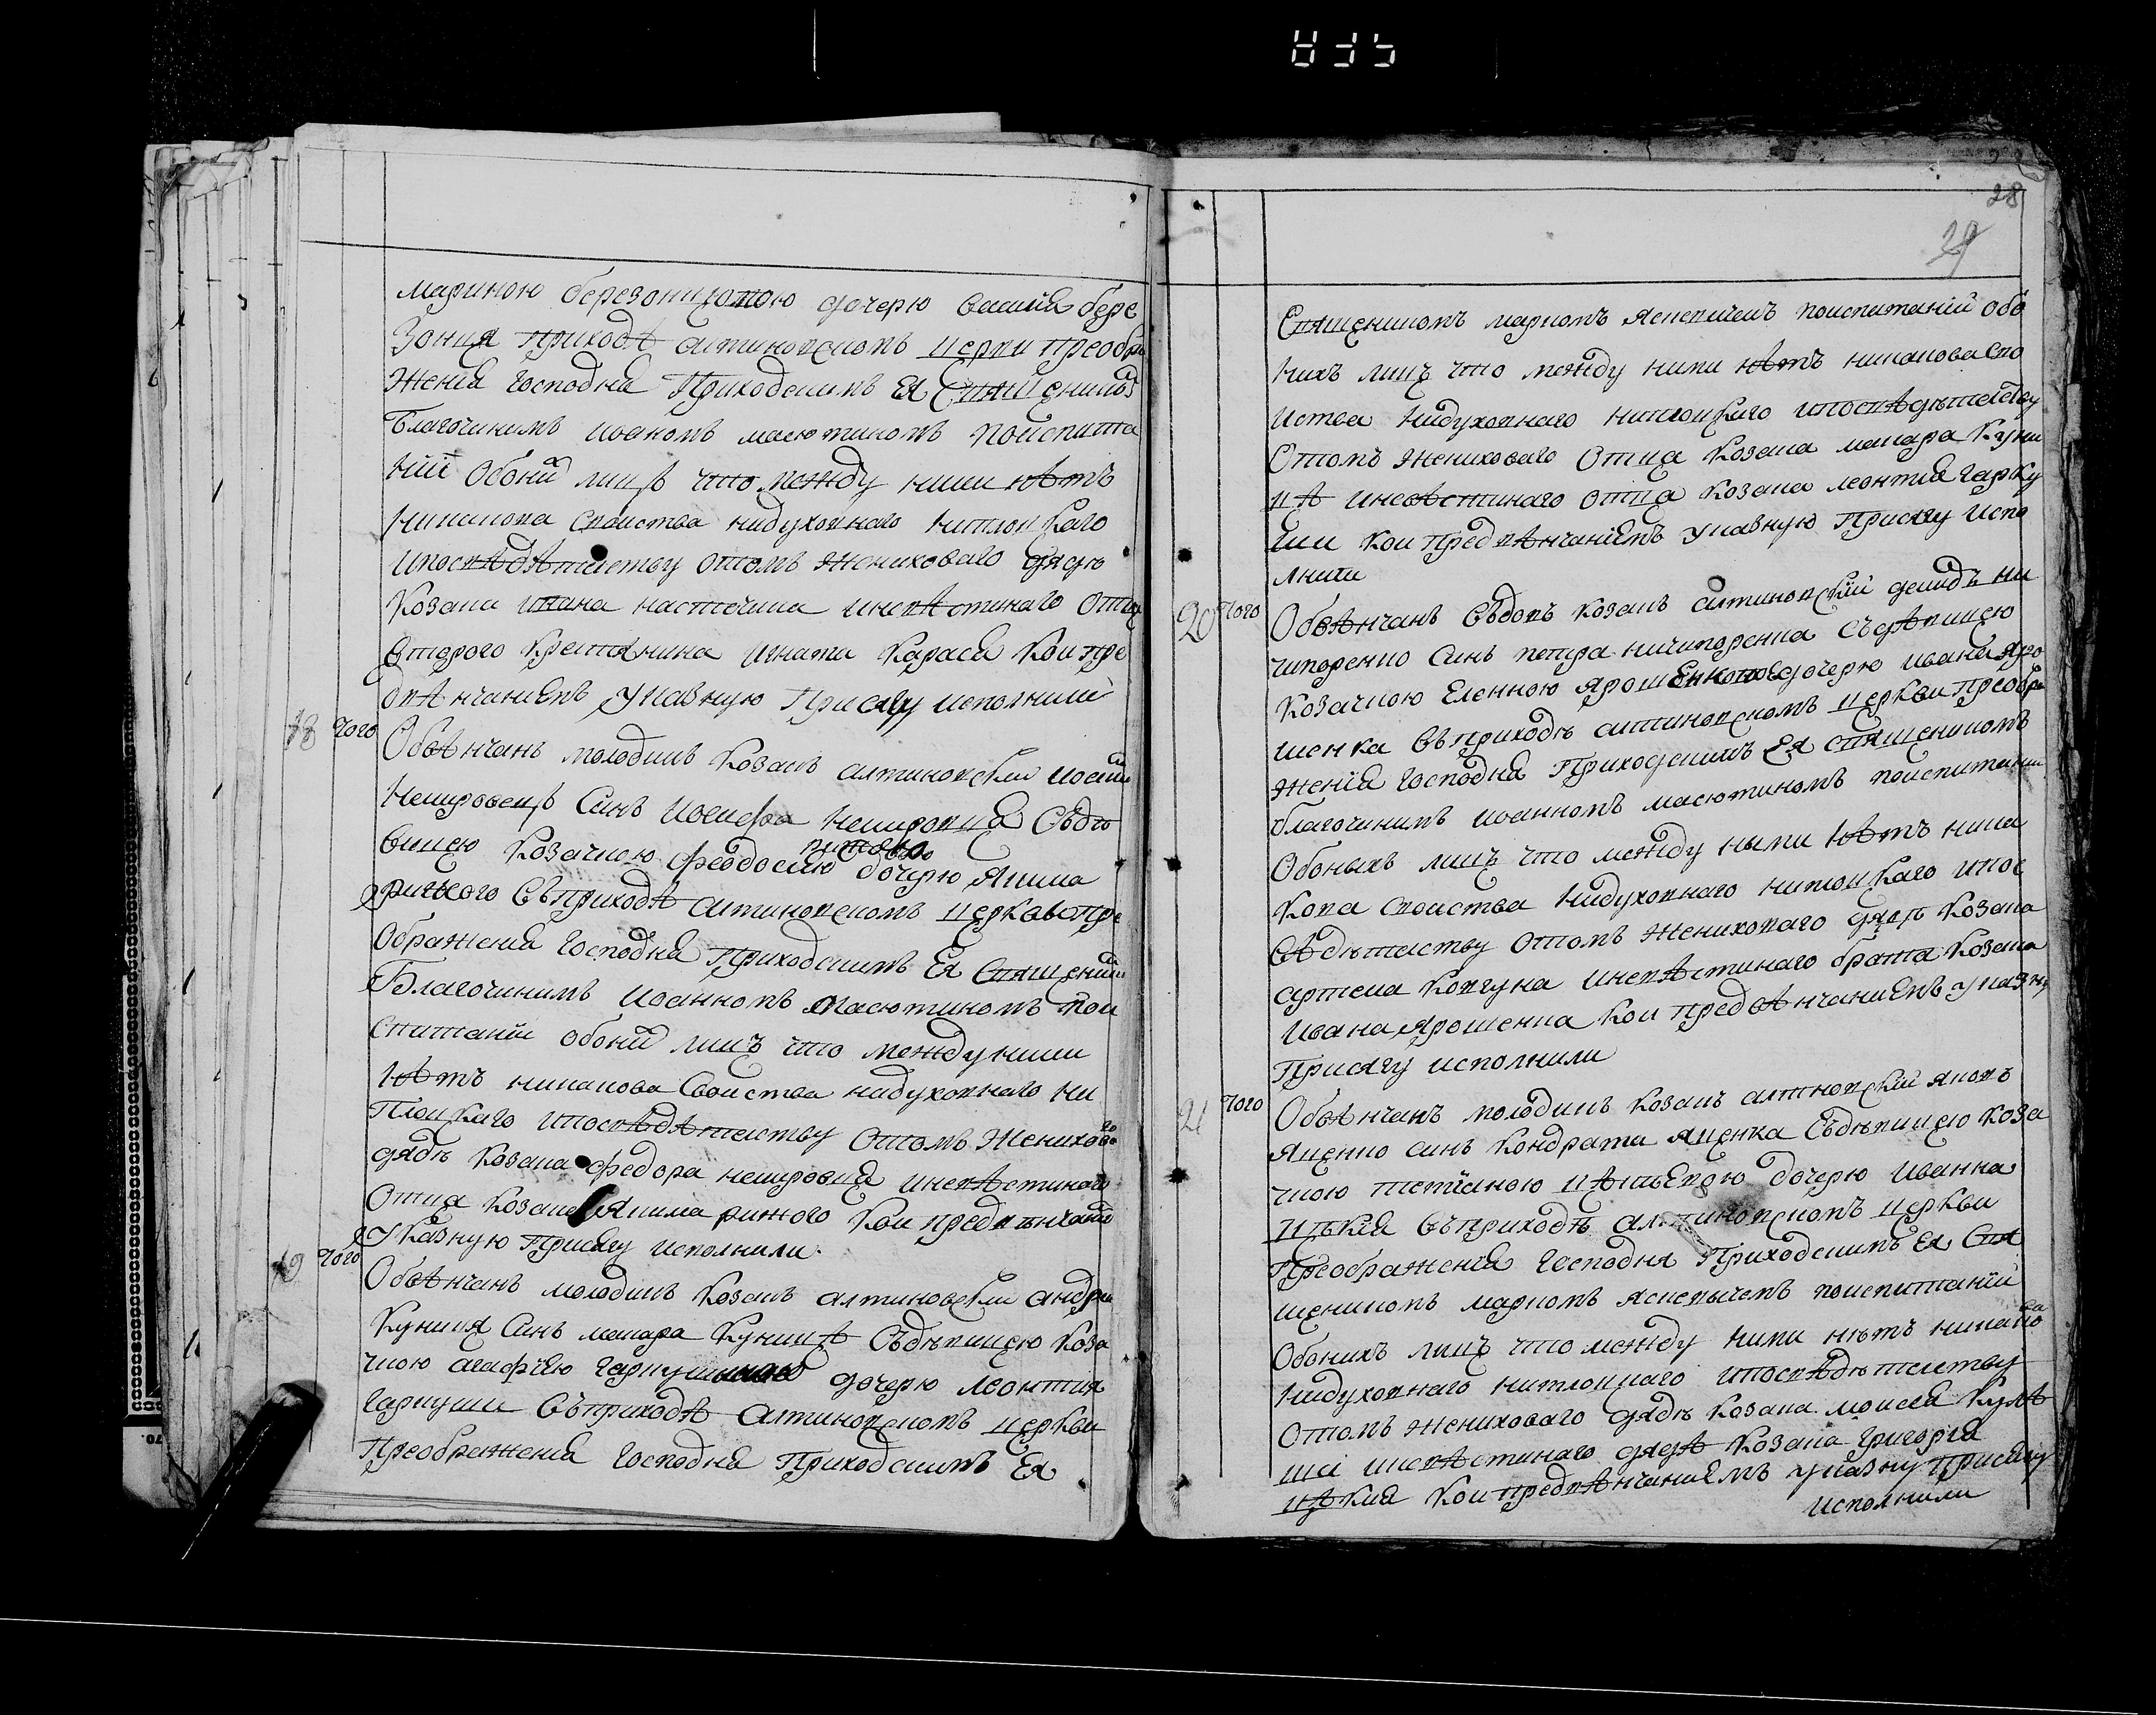 835
мариною березоницкою дочерю василія бере
зонця приходѣ алтиновскомъ церкви преобра
женія господня приходскимъ ея священикомъ
благочинимъ иоаномъ масютиномъ поиспита
ніи обоихъ лицъ что между ними нѣтъ
никакова свойства нидуховнаго ниплоцкаго
ипосвѣдѣтелству отомъ жениховаго дядю
козака ивана настечика иневѣстинаго отца
второго крестянина игната карася кои пре
двѣнчаніемъ указную присягу исполнили
18 того
Обвѣнчанъ молодикъ козакъ алтиновскии иосии
немировецъ синъ иосифа немировца съдѣ
вицею козачкою феодосию дочерю якима
рижого въприходѣ алтиновскомъ церкви пре
ображенія господня приходскимъ ея священии
благочинимъ иоанномъ масютиномъ пои
спитаніи обоихъ лицъ что между ними
нѣтъ никакова свойства нидуховнаго ни
плоцкаго ипосвѣдѣтелству отомъ жениховаго
дядѣ козака федора немировця иневѣстинаго
отца козака якима рижого кои предвѣнчание
указную присягу исполнили.
19 того
Обвѣнчанъ молодикъ козакъ алтиновскии андреи
куница синъ макара куницѣ съдѣвицею коза
чкою агафіею гаркушиною дочерю леонтия
гаркуши въприходѣ алтиновскомъ церкви
преображенія господня приходскимъ ея
28
29
священикомъ маркомъ ясневичемъ поиспитаніи обо
нихъ лицъ что между ними нѣтъ никакова сво
иства нидуховнаго ниплоцкаго ипосвѣдѣтелству
отомъ жениховаго отца козака макара куни
цѣ иневѣстинаго отца козака леонтія гарку
ши кои предвѣнчаніемъ указную присягу испо
лнили
20 того
Обвѣнчанъ въдовъ козакъ алтиновскій демидъ ни
чипоренко синъ петра ничипоренка съдѣвицею
козачкою еленною ярошенковою дочерю ивана яро
шенка въприходѣ алтиновскомъ церкви преобра
женія господня приходскимъ ея священикомъ
благочинимъ иоанномъ масютиномъ поиспитании
обоныхъ лицъ что между ными нѣтъ ника
кова своиства нидуховнаго ниплоцкаго ипос
вѣдѣтелству отомъ жениховаго дядѣ козака
артема ковгуна иневѣстинаго брата козака
ивана ярошенка кои предвѣнчаниемъ указну
присягу исполнили
21 того
Обвѣнчанъ молодикъ козакъ алтновскій яковъ
яценко синъ кондрата яценка съдѣвицею коза
чкою тетіаною цѣпкевою дочерю иванна
цѣпкія въприходѣ алтиновскомъ церкви
преображенія господня приходскимъ ея свя
щеникомъ маркомъ ясневычемъ поиспитаніи
обонихъ лицъ что между ними нѣтъ никаково
нидуховнаго ниплоцкаго ипосвѣдѣтелству
отомъ жениховаго дядѣ козака моисея кулѣ
ши иневѣстинаго дядѣ козака григорія
цѣпкия кои предвѣнчаниемъ указну присягу
исполнили